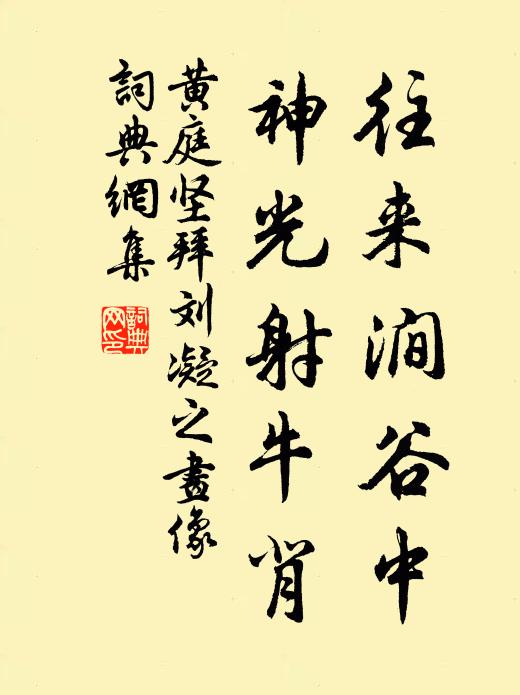 往来涧谷中
神光射牛背
黄庭坚拜刘凝之畫像
詞典網集
詞典网印